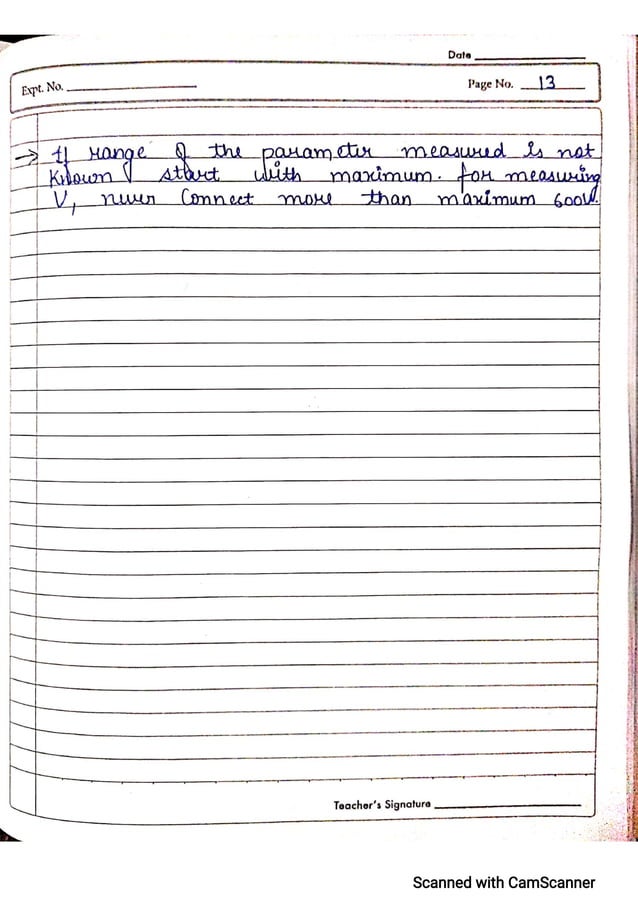 Date
Expt. No.
Page No. 13
→ If range of the parameter measured is not
Known start with maximum. for measuring
V, never Connect more than maximum 600V.
Teacher's Signature
Scanned with CamScanner